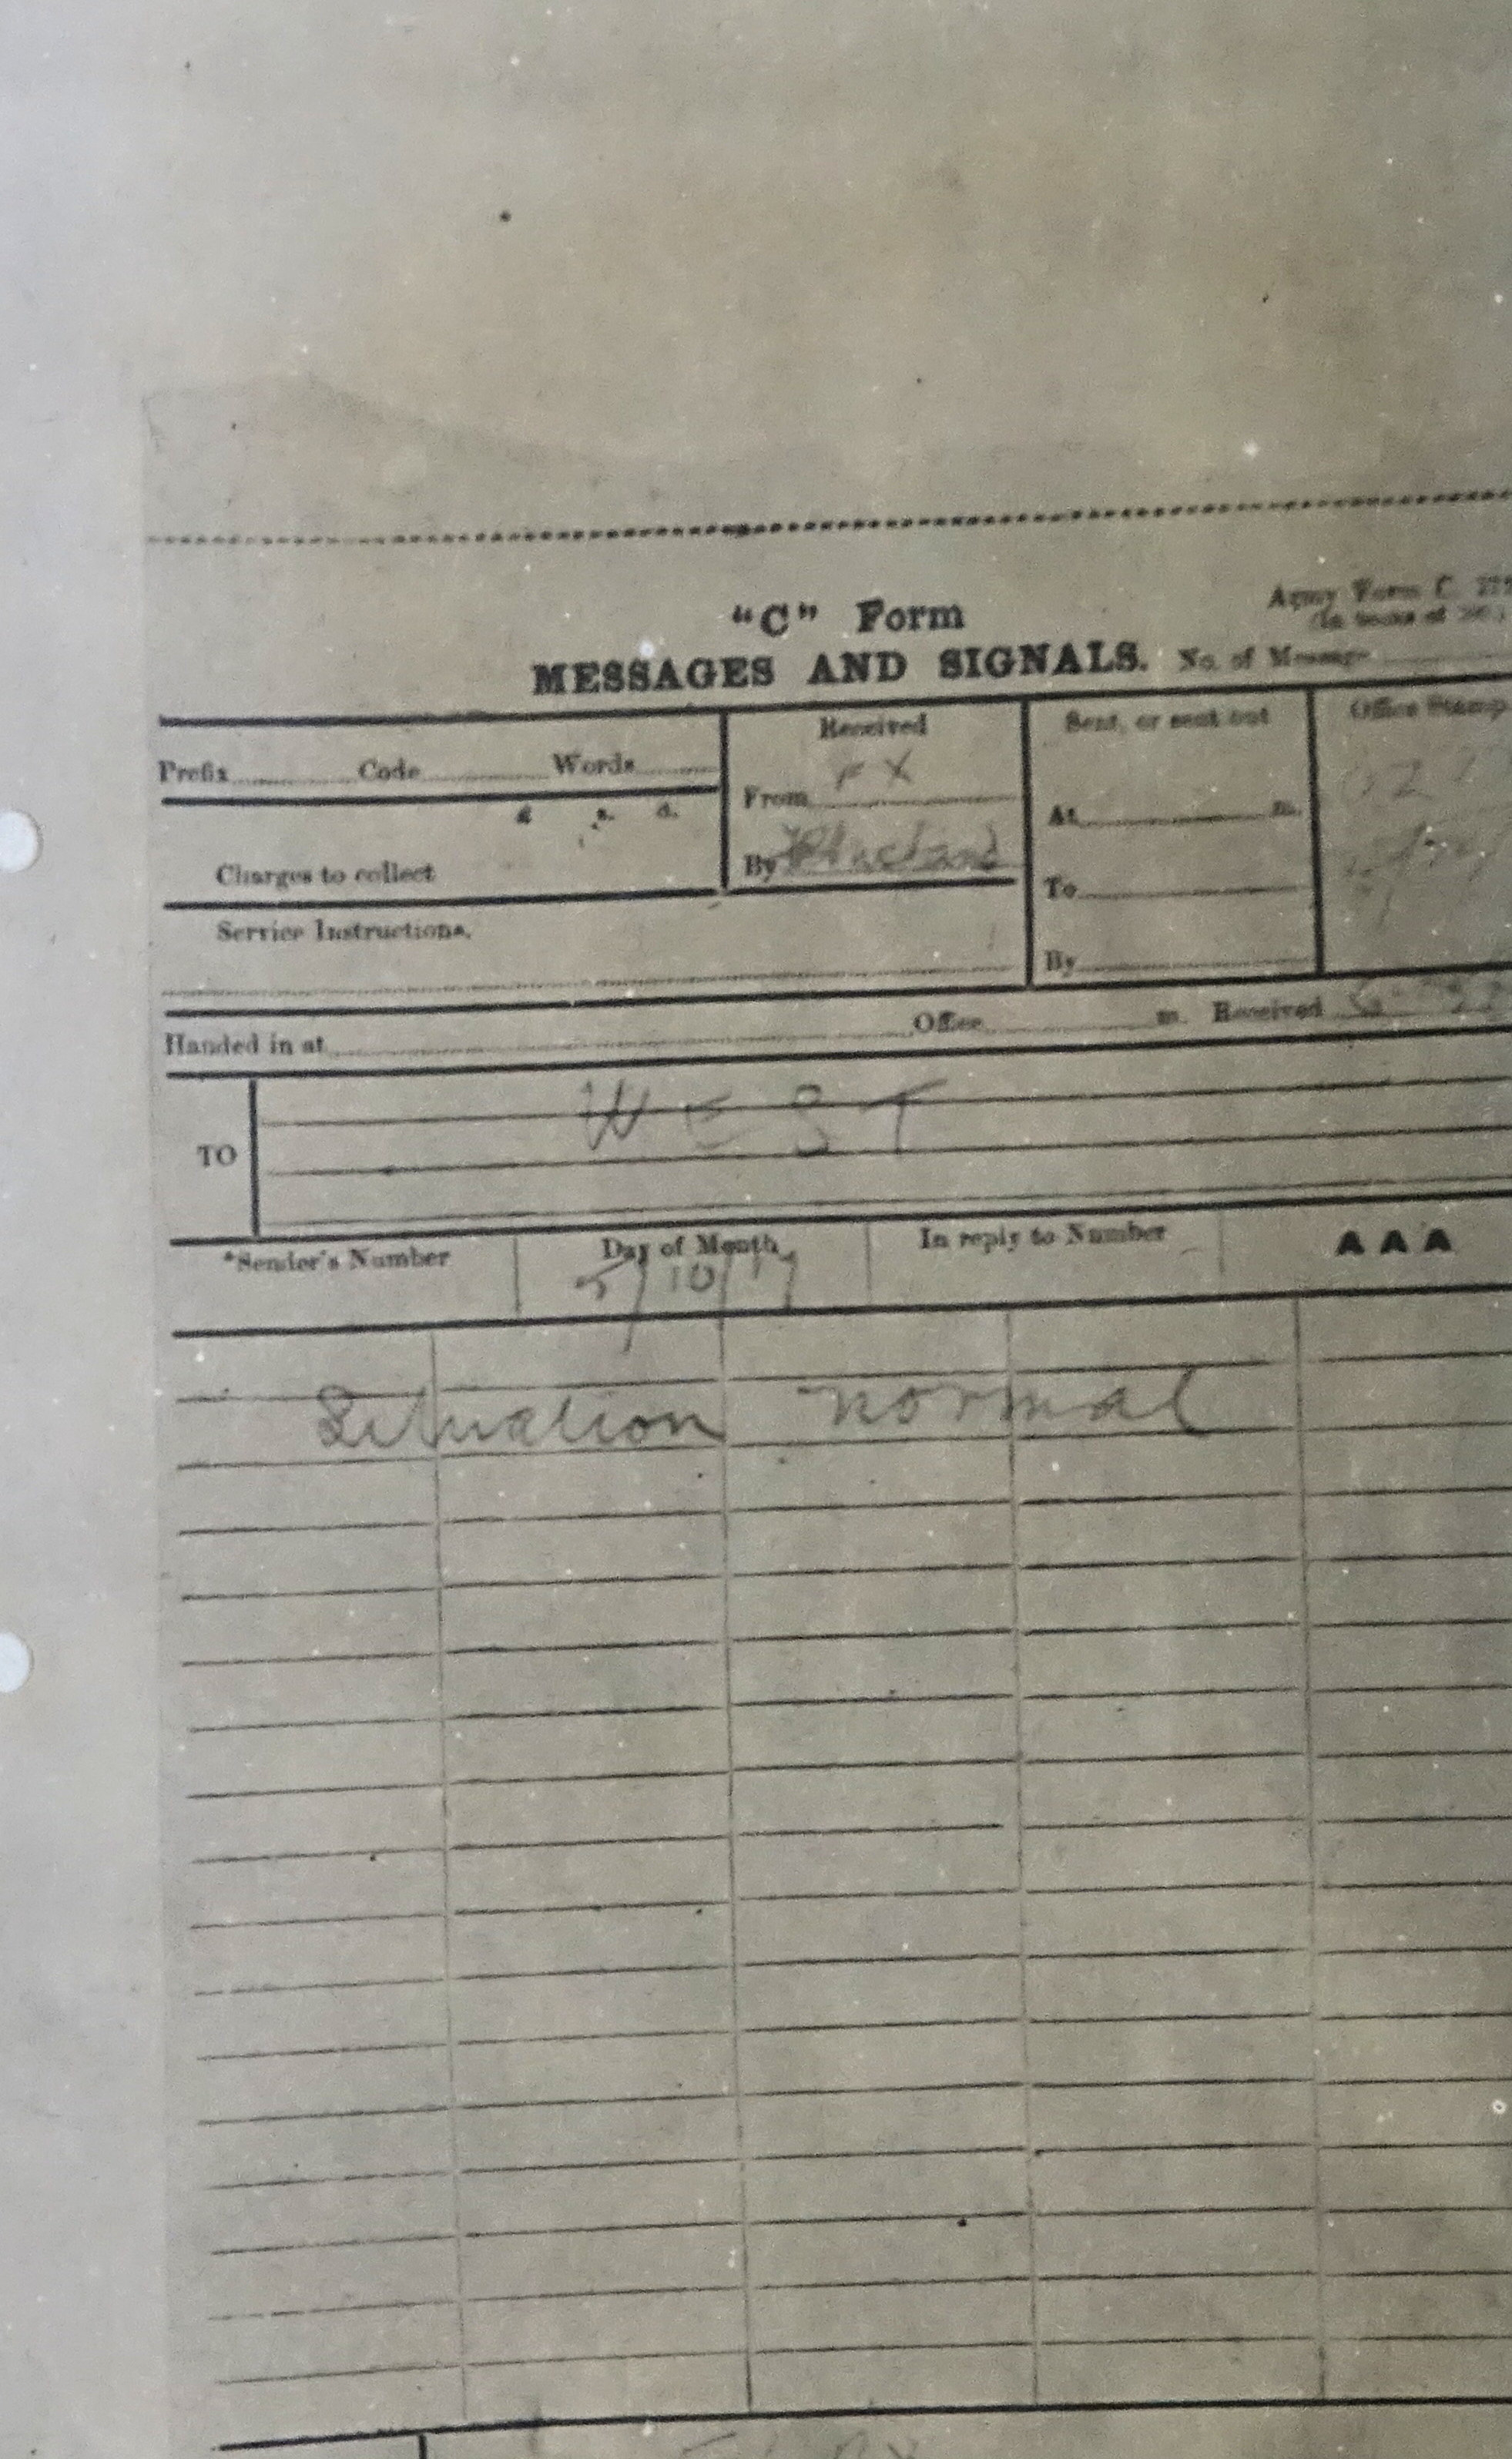 "C" Form
Army Form C.
MESSAGES AND SIGNALS. No. of Message
Prefix Code Words
Received
From
By
Sent, or sent out
At m.
To
By
Office Stamp
£ s. d.
Charges to collect
Service Instructions.
Handed in at Office m. Received
TO WEST
*Sender's Number
Day of Month
5/10/17
In reply to Number
AAA
Situation normal